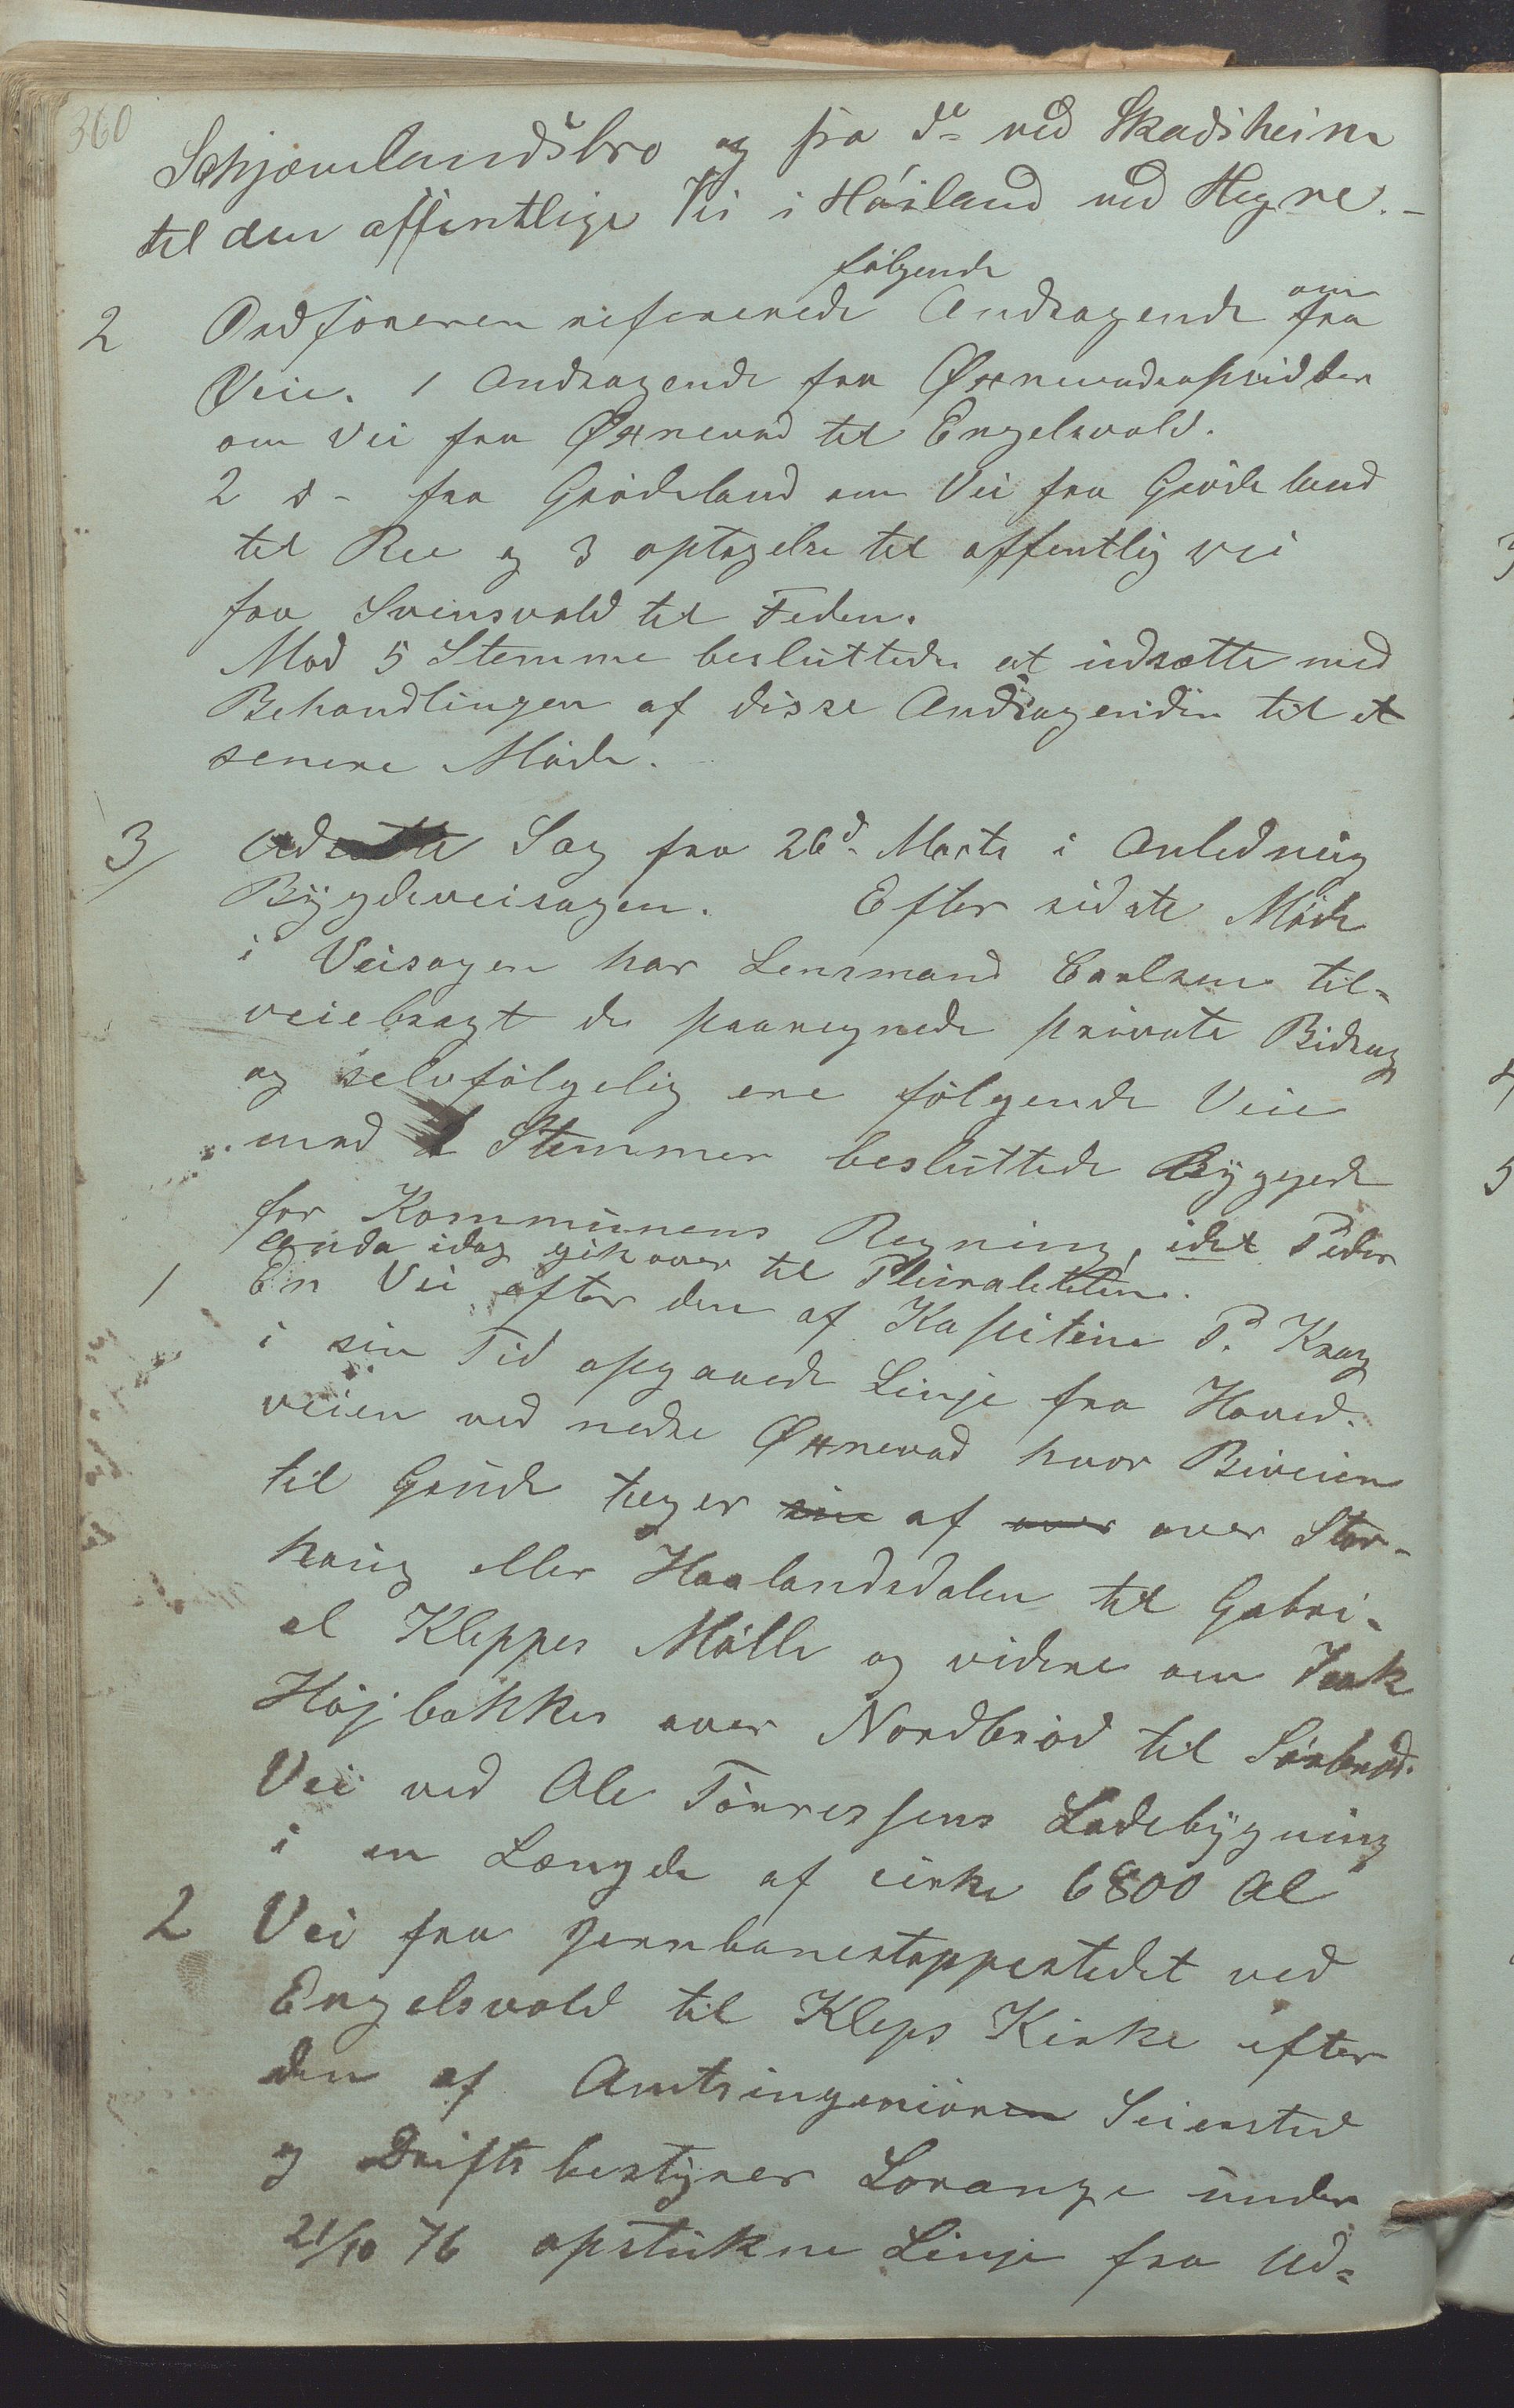 360
Schjæmlandsbro og fra do ved Skadsheim
til den offentlige Vei i Høiland ved Hegre.-
følgende
2 Ordføreren refererede Andragende om fra
Veie. 1 Andragende fra Øxnevadopsidder
om Vei fra Øxnevad til Engelsvold.
2 d- fra Grødeland om Vei fra Grødeland
til Ree og 3 optagelse til offentlig vei
fra Svensvold til Feden.
Mod 5 Stemme besluttedes at udsætte med
Behandlingen af disse Andragender til et
senere Møde.
3/ Sag fra 26d. Marts i Anledning
Bygdeveisagen. Efter sidste Møde
i Veisagen har Lensmand Carlsen til-
veiebragt de paaregnede private Bidrag
og selvfølgelig ere følgende Veie
med Stemmer besluttede Byggede
for Kommunens Regning, idet Peder
Anda idag gik over til Pluraliteten.
1 En Vei efter den af Kapiteine P. Krag
i sin Tid opgaaede Linje fra Hoved-
veien ved nedre Øxnevad hvor Biveien
til Grude tager sin af over over Stor-
haug eller Haalandsdalen til Gabri-
el Kleppes Mølle og videre om
Højbakkes over Nordbrød til Sørbrød.
Vei ved Ole Tørressens Ladebygning
i en Længde af cirka 6800 Al
2 Vei fra Jernbanestoppestedet ved
Engelsvold til Kleps Kirke efter
den af Amtsingeniøren Seiersted
og Driftsbestyrer Lorange under
21/10 76 opstukne Linje fra Ud-